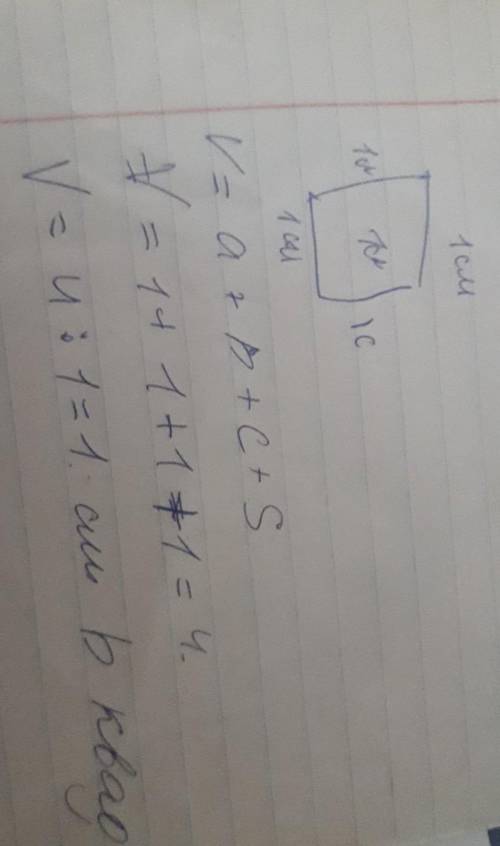 1см
1см
1см
1с
V = a + b + c + S
V = 1 + 1 + 1 + 1 = 4.
V = 4 : 1 = 1. см b квад